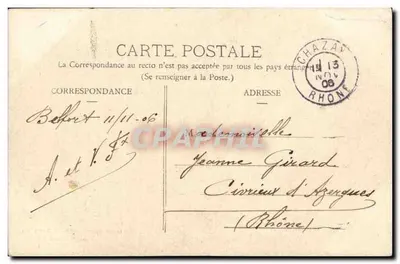 CARTE POSTALE
La Correspondance au recto n'est pas acceptée par tous les pays étrangers
(Se renseigner à la Poste.)
CORRESPONDANCE
ADRESSE
CHAZAY
13
06
RHONE
Belfort 11/11-06
A. et V.
Mademoiselle
Jeanne Girard
Civrieux d'Azergues
(Rhône)
CARTAPOSTALE